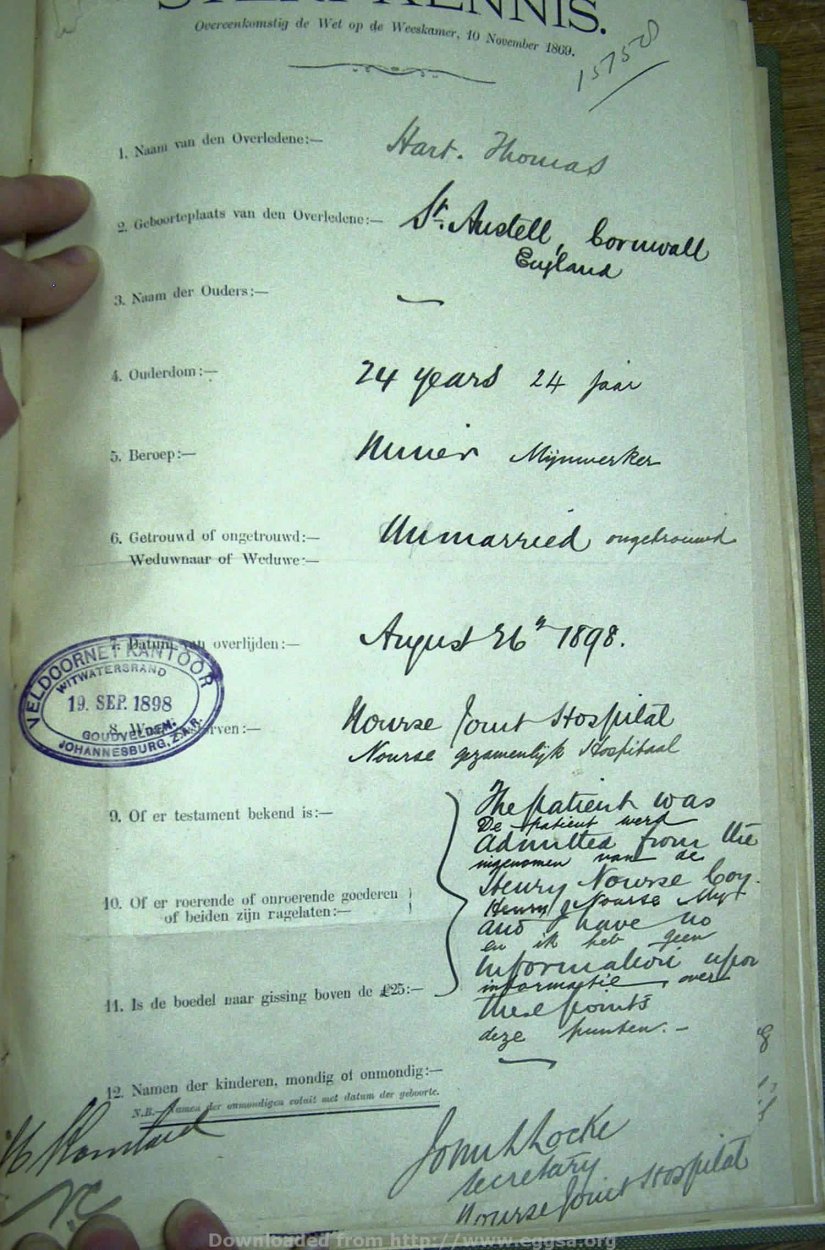 STERFKENNIS.
Overeenkomstig de Wet op de Weeskamer, 10 November 1869.
1. Naam van den Overledene:— Hart. Thomas
2. Geboorteplaats van den Overledene:— St. Austell, Cornwall
England
3. Naam der Ouders:— —
4. Ouderdom:— 24 years 24 jaar
5. Beroep:— Miner Mijnwerker
6. Getrouwd of ongetrouwd:— Unmarried ongetrouwd
Weduwnaar of Weduwe:—
7. Datum van overlijden:— August 26th 1898.
VELDOORNET KANTOOR
WITWATERSRAND
19. SEP. 1898
GOUDVELDEN.
JOHANNESBURG, Z.A.R.
8. Nourse Joint Hospital
Nourse gezamentlijk Hospitaal
9. Of er testament bekend is:— The patient was
De patient werd
admitted from the
ingenomen van de
10. Of er roerende of onroerende goederen Henry Nourse Coy.
of beiden zijn nagelaten:— Henry Nourse My
and have no
en ik heb geen
information upon
11. Is de boedel naar gissing boven de £25:— informatie over
these points
deze punten.—
12. Namen der kinderen, mondig of onmondig:— —
N.B.—Namen der onmondigen voluit met datum der geboorte.
John L Locke
Secretary
Nourse Joint Hospital
Downloaded from http://www.eggsa.org